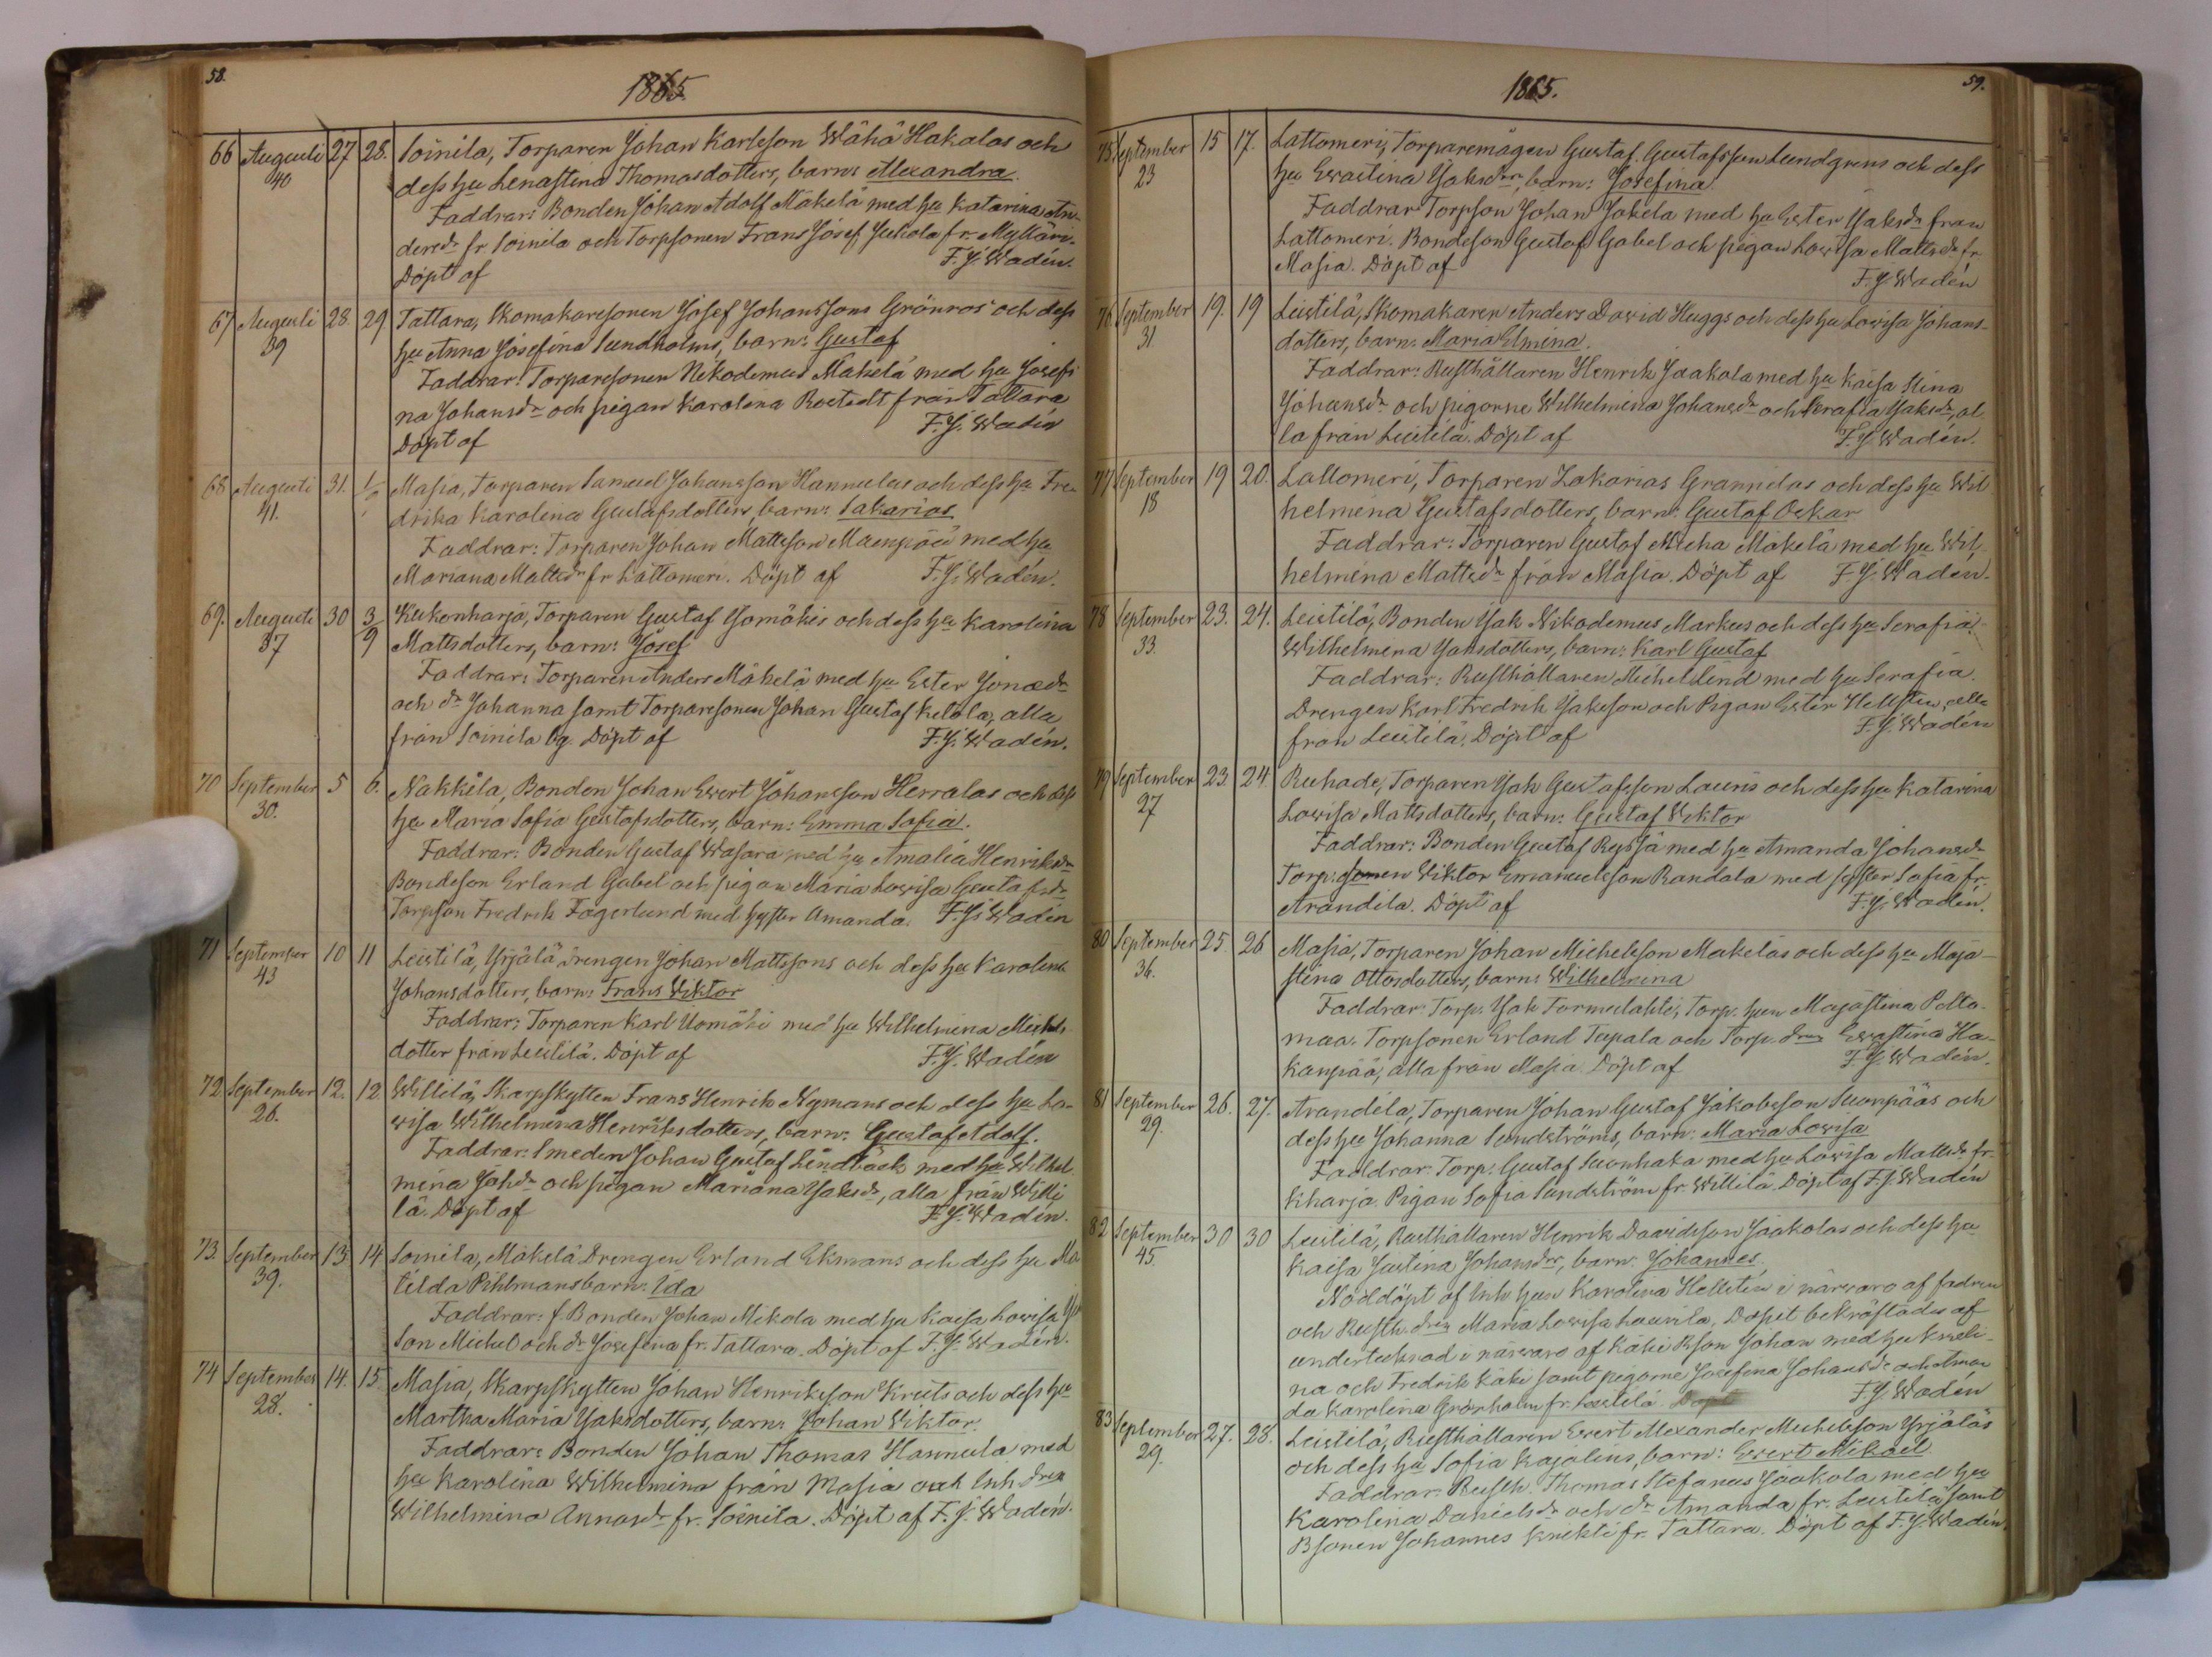 58.
1865.
66 Augusti 27 28. Soinila, Torparen Johan Karlsson Wähä Hakalas och
40 dess hu Lenastina Thomasdotters, barn: Alexandra.
Faddrar: Bonden Johan Adolf Mäkelä med hu Katarina An-
dersdr fr Soinila och Torpsonen Frans Josef Jukola fr.
Döpt af F. J. Wadén.
67 Augusti 28. 29. Tattara, Skomakaresonen Josef Johanssons Grönroos och dess
39 hu Anna Josefina Sundholms, barn: Gustaf
Faddrar: Torparesonen Nikodemus Mäkelä med hu Josefi
na Johansdr och pigan Karolina Rostedt från Tattara
Döpt af F. J. Wadén
68 Augusti 31. 1/9 Masia, Torparen Samuel Johansson Hannulas och dess hu Fre-
41. drika Karolina Gustafsdotters, barn: Sakarias
Faddrar: Torparen Johan Mattsson Maenpää med hu
Mariana Mattsdr fr Lattomeri. Döpt af F. J. Wadén.
69. Augusti 30 3/9 Kukonharja, Torparen Gustaf och dess hu Karolina
37 Mattsdotters, barn: Josef
Faddrar: Torparen Anders Mäkelä med hu Ester Jonasdr
och dr Johanna samt Torparesonen Johan Gustaf Ketola, alla
från Soinila by. Döpt af F. J. Wadén.
70 September 5 6. Nakkila, Bonden Johan Evert Johansson Herralas och dess
30. hu Maria Sofia Gustafsdotters, barn: Emma Sofia.
Faddrar: Bonden Gustaf Wasara med hu Amalia Henriksdr
Bondeson Erland Gabel och pigan Maria Lovisa Gustafsdr
Torpson Fredrik Fagerlund med syster Amanda. F. J. Wadén
71 September 10 11 Leistilä, Yrjälä drengen Johan Mattssons och dess hu Karolina
43 Johansdotters, barn: Frans Wiktor
Faddrar: Torparen Karl Uomäki med hu Wilhelmina Michels
dotter från Leistilä. Döpt af F. J. Wadén
72. September 12. 12 Willilä, Skarpskytten Frans Henrik Nymans och dess hu Lo-
26. wisa Wilhelmina Henriksdotters, barn: Gustaf Adolf.
Faddrar: Smeden Johan Gustaf Lindbäck med hu Wilhel
mina Johdr och pigan Mariana Jaksdr, alla från Willi
lä. Döpt af F. J. Wadén.
73. September 13 14 Soinila, Mäkelä Drengen Erland Ekmans och dess hu Ma
39. tilda Pihlmans barn: Ida
Faddrar: f. Bonden Johan Mikola med hu Kaisa Lovisa
Son Michel och dr Josefina fr. Tattara. Döpt af F. J. Wadén.
74 September 14. 15. Masia, Skarpskytten Johan Henriksson Kreuts och dess hu
28. Martha Maria Jaksdotters, barn: Johan Wiktor.
Faddrar: Bonden Johan Thomas Hannula med
hu Karolina Wilhelmina från Masia och Inh. dren
Wilhelmina Annasdr fr. Soinila. Döpt af F. J. Wadén.
59.
1865.
75 September 15 17. Lattomeri, Torparemågen Gustaf Gustafsson Lundgrens och dess
23 hu Evastina Jaksdrrs, barn: Josefina
Faddrar: Torpson Johan Jakela med hu Ester Jaksdr från
Lattomeri. Bondeson Gustaf Gabel och pigan Lovisa Mattsdr fr.
Masia. Döpt af F. J. Wadén
76 September 19. 19 Leistilä, Skomakaren Anders David Huggs och dess hu Lovisa Johans-
31 dotters, barn: Maria Elmina.
Faddrar: Rusthållaren Henrik Jaakola med hu Kaisa Stina
Johansdr och pigorne Wilhelmina Johansdr och Serafia Jaksdr, al
la från Leistilä. Döpt af F. J. Wadén.
77 September 19 20. Lattomeri, Torparen Zakarias Grannilas och dess hu Wil
18 helmina Gustafsdotters, barn: Gustaf Oskar
Faddrar: Torparen Gustaf Micha Mäkelä med hu Wil
helmina Mattsdr från Masia. Döpt af F. J. Wadén.
78 September 23. 24. Leistilä, Bonden Jak Nikodemus Markus och dess hu Serafia
33. Wilhelmina Jaksdotters, barn: Karl Gustaf
Faddrar: Rusthållaren Michel Lind med hu Serafia.
Drengen Karl Fredrik Jaksson och Pigan Ester Hellsten, alla
från Leistilä. Döpt af F. J. Wadén
79 September 23. 24 Ruhade, Torparen Jak Gustafsson Lauris och dess hu Katarina
27 Lovisa Mattsdotters, barn: Gustaf Wiktor
Faddrar: Bonden Gustaf Ryssä med hu Amanda Johansdr
Torp. sonen Wiktor Emanuelsson Randala med syster Sofia fr.
Arandila. Döpt af F. J. Wadén.
80 September 25. 26 Masia, Torparen Johan Michelsson Makelas och dess hu Maja
36. stina Ottosdotters, barn: Wilhelmina
Faddrar: Torp. Jak Turmulahti, Torp. hun Majastina Pelto-
maa. Torpsonen Erland Tupala och Torp. dren Evastina Ha-
kanpää, alla från Masia. Döpt af F. J. Wadén.
81 September 26. 27. Arandila, Torparen Johan Gustaf Jakobsson Suonpääs och
29. dess hu Johanna Sundströms, barn: Maria Lovisa
Faddrar: Torp. Gustaf Suonhaka med hu Lovisa Mattsdr fr.
Kharja. Pigan Sofia Sundström fr. Willilä. Döpt af F. J. Wadén
82 September 30 30 Leistilä, Rusthållaren Henrik Davidsson Jaakolas och dess hu
45. Kaisa Justina Johansdrs, barn: Johannes.
Nöddöpt af Inh. hun Karolina Hellstén i närvaro af fadren
och Rusth. dren Maria Lovisa Lauvila. Dopet bekräftades af
undertecknad i närvaro af Käki Rson Johan med hu Eveli-
na och Fredrik Käki samt pigorne Josefina Johansdr och Aman
da Karolina Grönholm fr. Leistilä. F. J. Wadén
83 September 27. 28. Leistilä, Rusthållaren Evert Alexander Michelsson Yrjäläs
29. och dess hu Sofia Kajalins, barn: Evert Mikael
Faddrar: Rusth. Thomas Stefanus Jaakola med hu
Karolina Danielsdr och dr Amanda fr. Leistilä samt
Bsonen Johannes Knekti fr. Tattara. Döpt af F. J. Wadén.